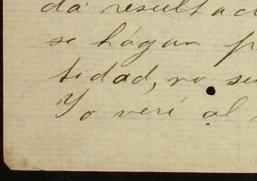 da resultad
se hágan p
tidad, no se
Yo veré al